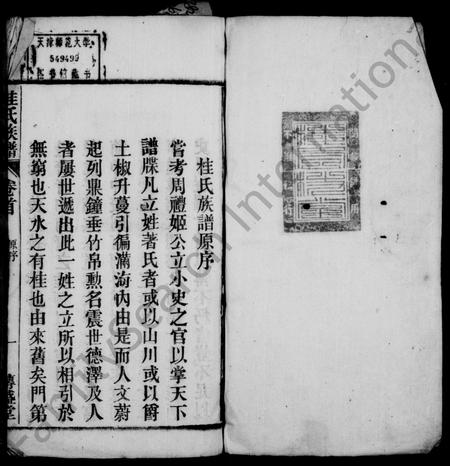 桂氏族譜原序
嘗考周禮姬公立小史之官以掌天下
譜牒凡立姓著氏者或以山川或以爵
土椒升蔓引徧滿海內由是而人文蔚
起列鼎鐘垂竹帛勲名震世德澤及人
者屢世遞出此一姓之立所以相引於
無窮也天水之有桂也由來舊矣門第
桂氏族譜
卷首
原序
一
堂
天津師范大學
549499
圖書館藏書
FamilySearch International